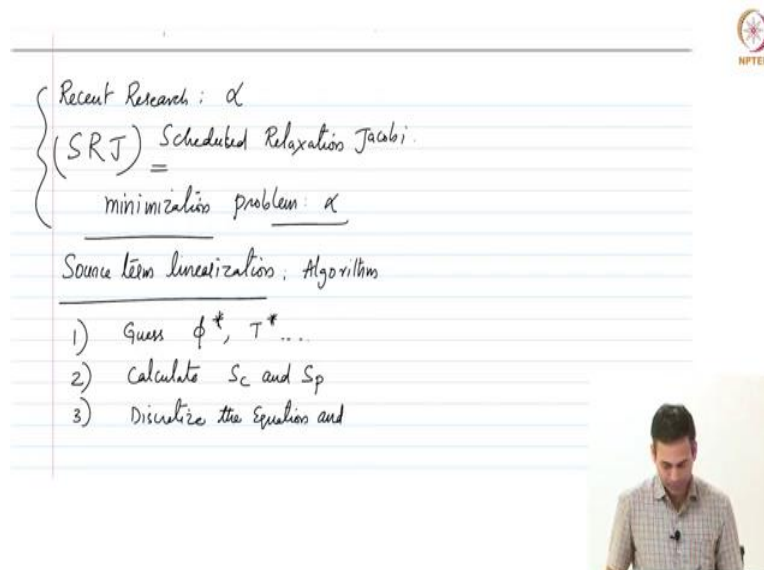 NPTEL
Recent Research : α
(SRJ) Scheduled Relaxation Jacobi.
minimization problem : α
Source term linearization : Algorithm
1) Guess φ*, T* ....
2) Calculate Sc and Sp
3) Discretize the Equation and